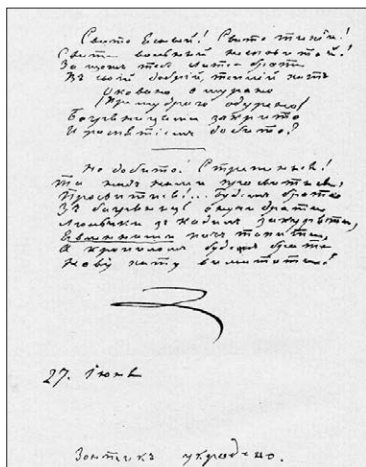 Свите ясный! Свите тихий!
Свите вольный несповитой!
За що жъ тебе свите брате
Въ своій добрій, теплій хати
Оковано омурано
(Премудрого одурено)
Багряницями закрито
И розпятіемъ добито?
Не добито! Стрепенись!
Та надъ нами просвитись,
Просвитись!.. Будемъ брате
Зъ багряниць онучи драти
Люльки зъ кадилъ закуряти,
Явленними пичъ топити,
А кропиломъ будемъ брате
Нову хату вимитати!
27. Іюня
Зонтикъ украдено.